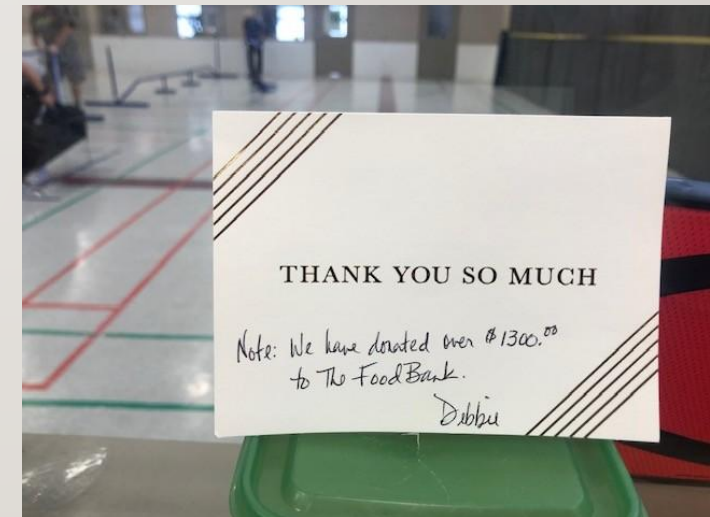 THANK YOU SO MUCH
Note: We have donated over $1300.00
to The Food Bank.
Debbie